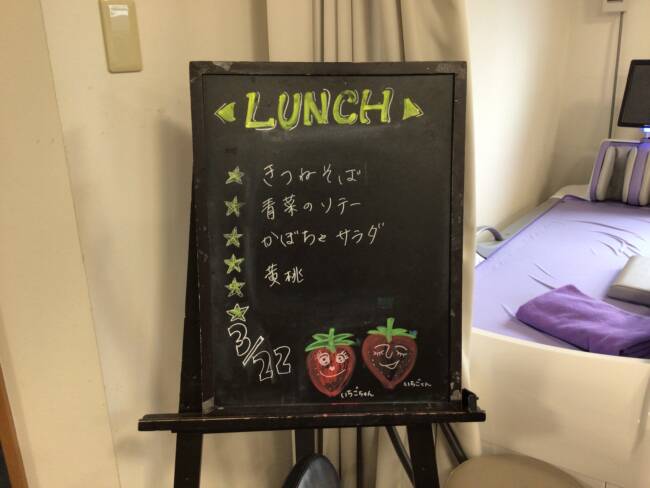 LUNCH
きつねそば
青菜のソテー
かぼちゃサラダ
黄桃
3/22
いちごちゃん
いちごくん